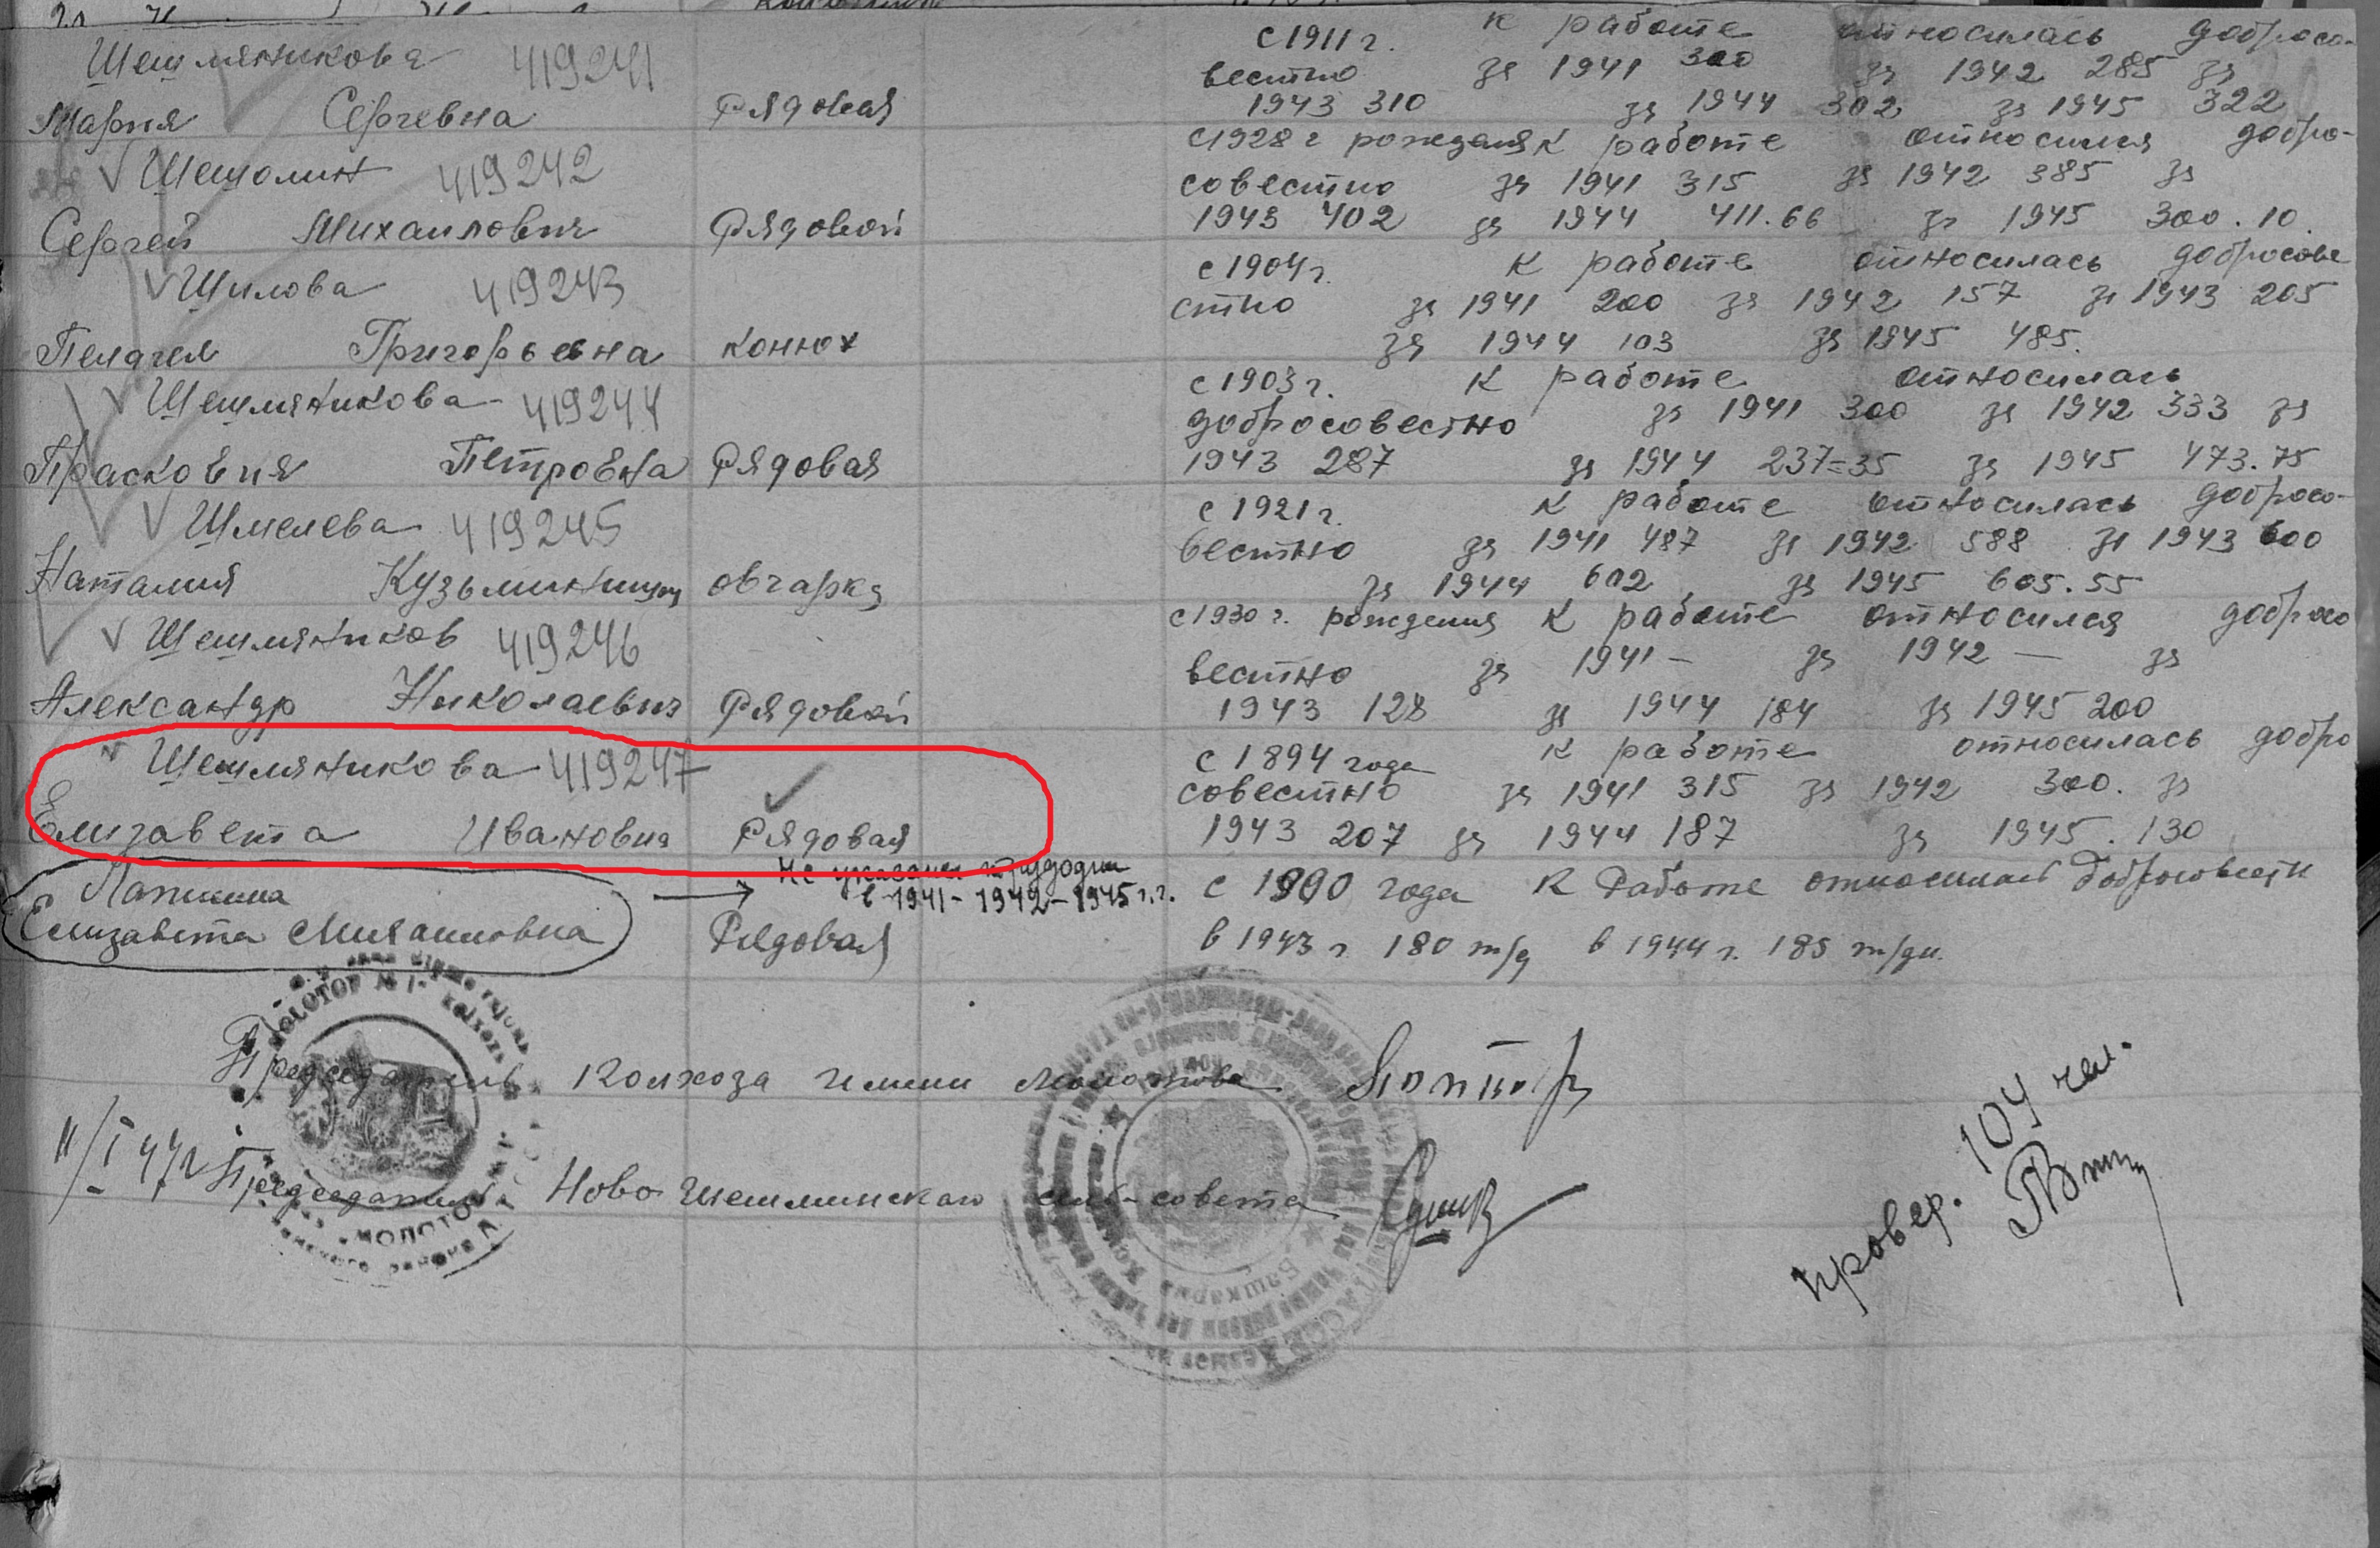 Шешляникова 419241 с 1911 г. к работе относилась добросо-
вестно за 1941 300 за 1942 285 за
Мария Сергевна Рядовая 1943 310 за 1944 302 за 1945 322
Шешолин 419242 с 1928 г рождения К работе относился добро-
совестно за 1941 315 за 1942 385 за
Сергей Михаилович Рядовой 1943 402 за 1944 411.66 за 1945 300.10.
Шилова 419243 с 1904 г. К работе относилась добросове
стно за 1941 200 за 1942 157 за 1943 205
Пелагея Григорьевна конюх за 1944 103 за 1945 485.
Шешляникова 419244 с 1903 г. К работе относилась
добросовестно за 1941 300 за 1942 333 за
Прасковия Петровна Рядовая 1943 287 за 1944 237=35 за 1945 473.75
Шмелева 419245 с 1921 г. К работе относилась добросо-
вестно за 1941 487 за 1942 588 за 1943 600
Наталия овчарка за 1944 602 за 1945 605.55
Шешляников 419246 с 1930 г. рождения К работе относился добросо
вестно за 1941 – за 1942 — за
Александр Николаевич Рядовой 1943 128 за 1944 184 за 1945 200
Шешляникова 419247 с 1894 года К работе относилась добро
совестно за 1941 315 за 1942 300. за
Елизавета Ивановна Рядовая 1943 207 за 1944 187 за 1945. 130
Не указаны трудодни
в 1941 - 1942 - 1945 г.г.
Лапшина с 1900 года К работе относилась добросовестн
Елизавета Михаиловна Рядовая в 1943 г. 180 т/д в 1944 г. 185 т/дн.
MOLOTOV
Председатель Колхоза имени Молотова
11/I 47г Председатель Ново Шешминского сель-совета
МОЛОТОВ
провер. 104 чел.